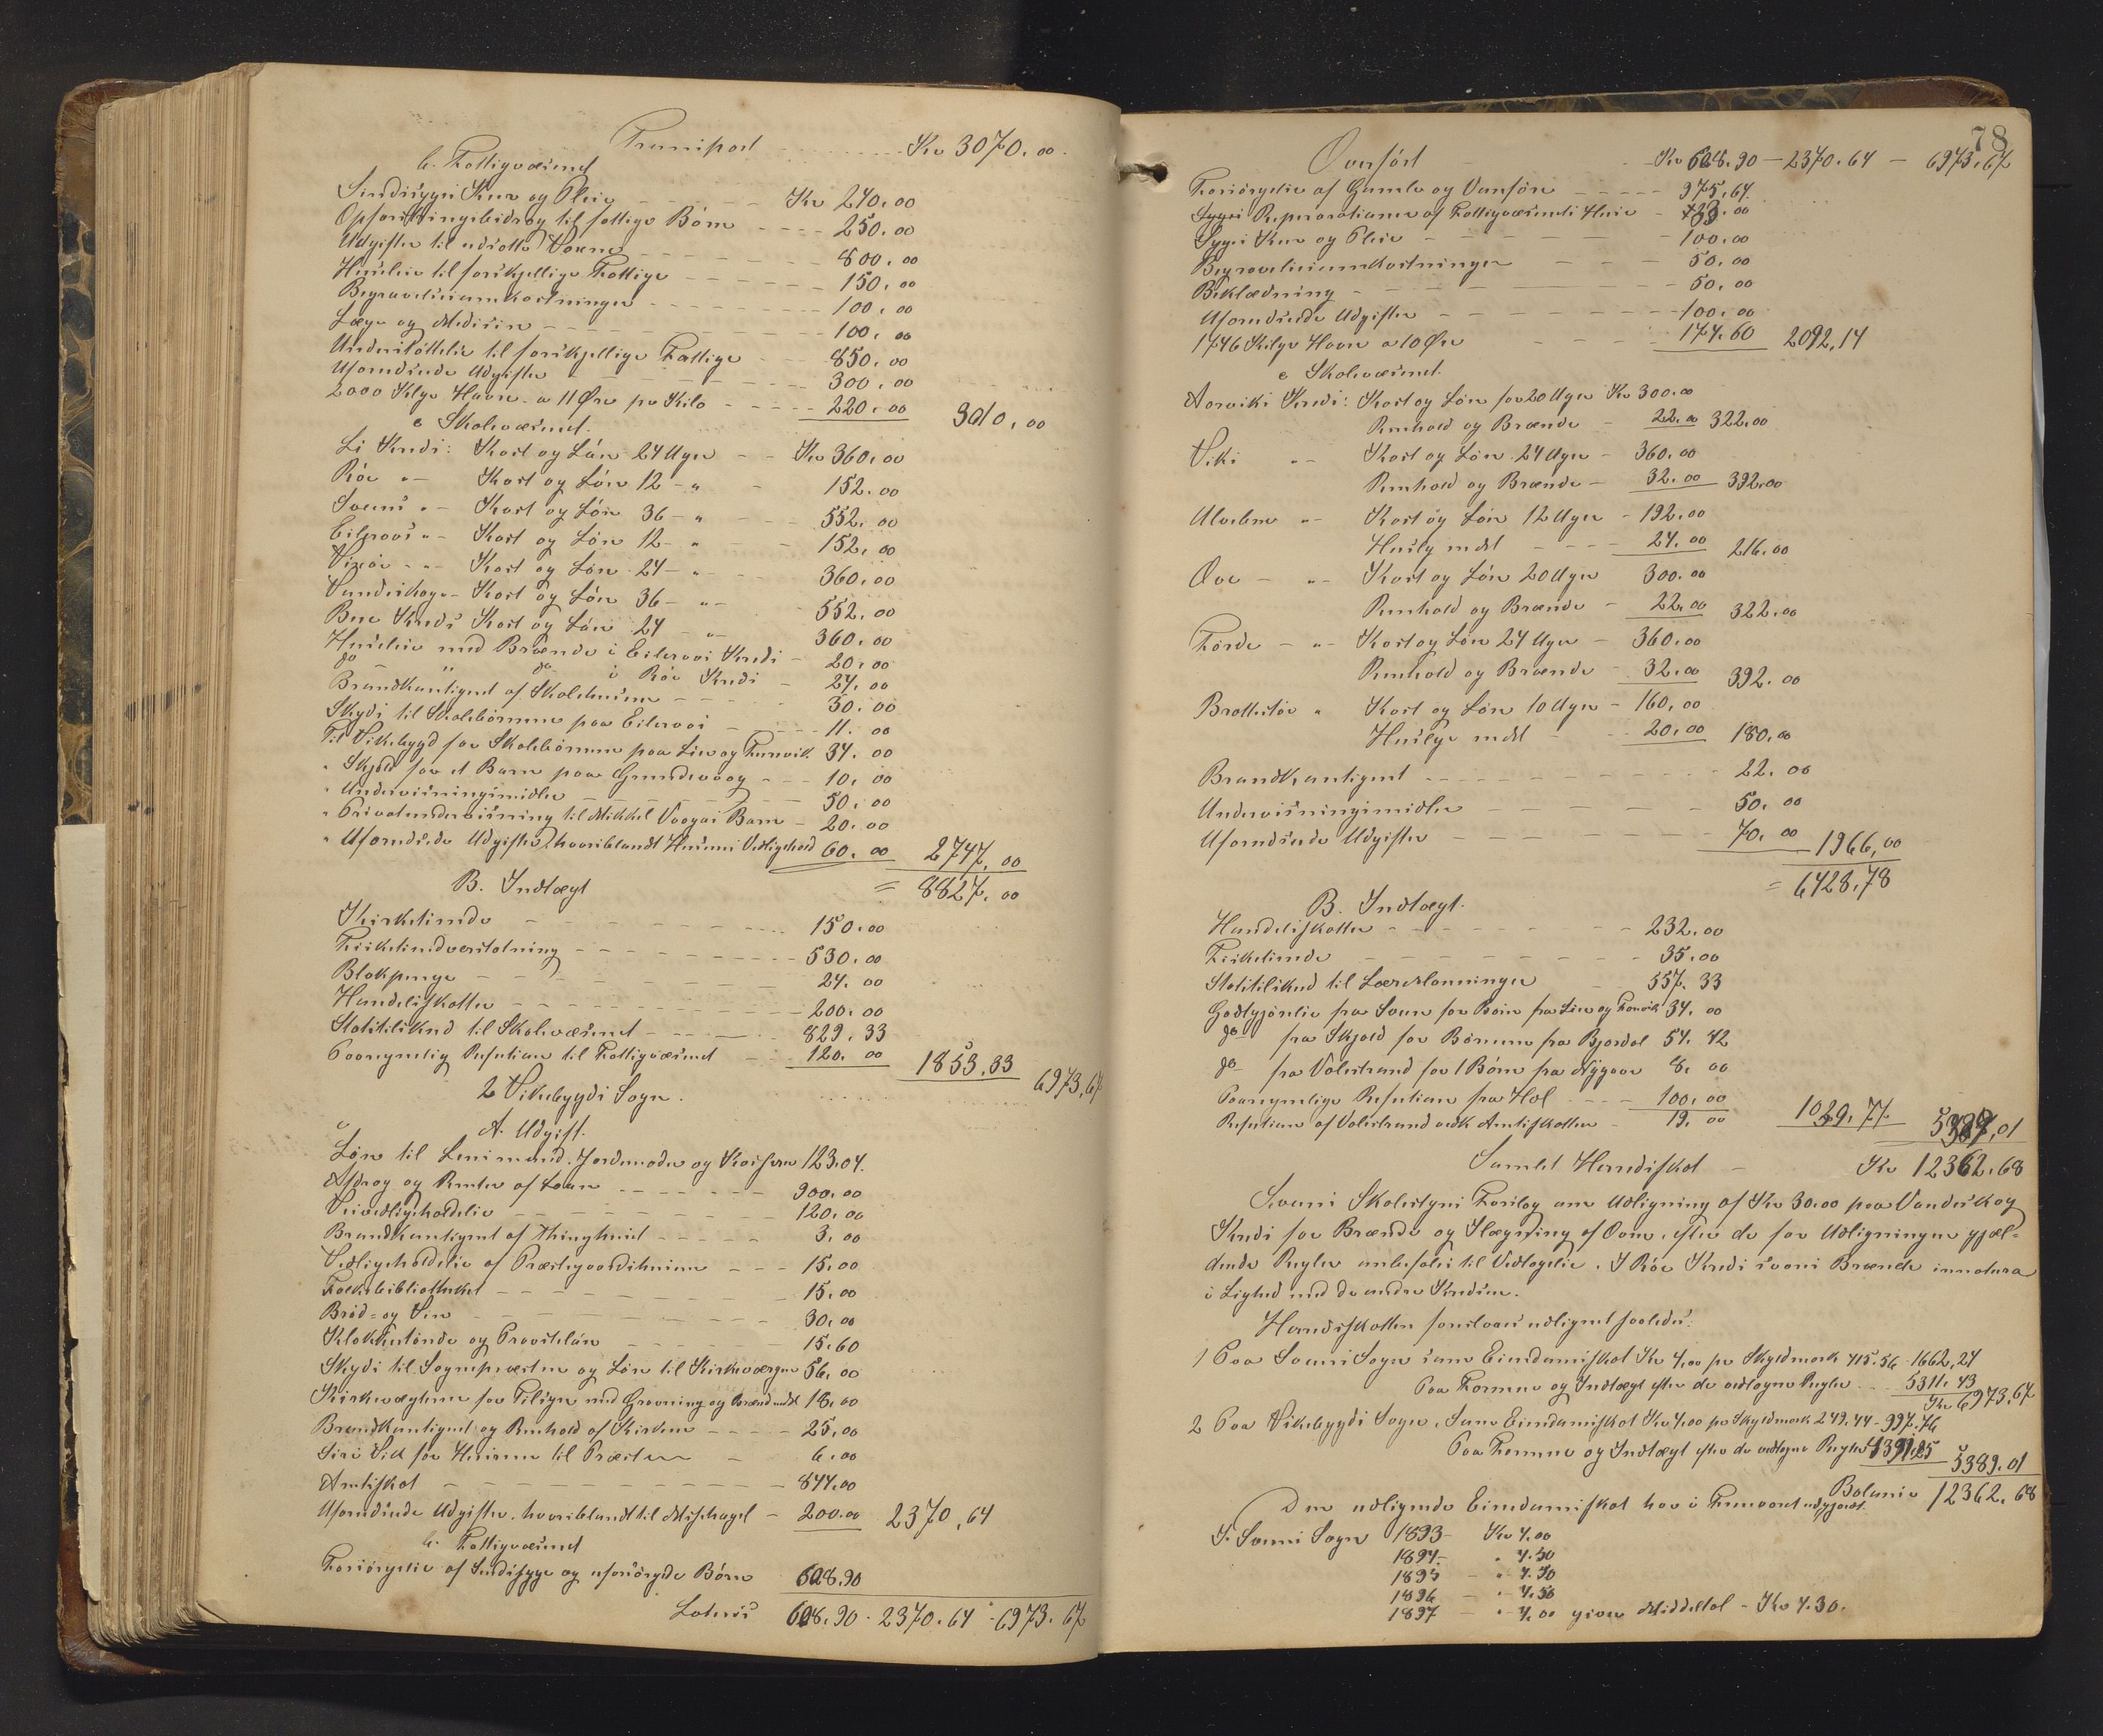 Transport - - - Kr 3070.00.
b. Fattigvæsenet
Sindssyges Kur og Pleie - - - Kr 240.00
Opfostringsbidrag til fattige Børn - - - 250.00
Udgifter til udsatte Voxne - - - 800.00
Husleie til forskjellige Fattige - - - 150.00
Begravelsesomkostninger - - - 100.00
Læge og Medisin - - - 100.00
Understøttelse til forskjellige Fattige - - - 850.00
Uforudseede Udgifter - - - 300.00
2000 Kilgr Havre a 11 Øre pr Kilo - - - 220.00 3010.00
c Skolevæsenet.
Li Kreds: Kost og Løn 24 Uger - - Kr 360.00
Røe " - Kost og Løn 12 - " - 152.00
Søvens " - Kost og Løn 36 - " - - - 552.00
Eileraas " - Kost og Løn 12 - " - - 152.00
Kost og Løn 24 - " - - 360.00
Vandeskog " - Kost og Løn 36 - " - 552.00
Bue Kreds Kost og Løn 24 - " - 360.00
Husleie med Brænde i Eileraas Kreds - 20.00
do " do i Røe Kreds - 24.00
Brandkontigent af Skolehusene - - - 30.00
Skyds til Skolebørnene paa Eileraas - - - 11.00
Til Vikebygd for Skolebørnene paa Lie og 34.00
" Skjold for et Barn paa Grindevaag - - - 10.00
" Undervisningsmidler - - - 50.00
" Privatundervisning til Mikkel Vaagas Barn - 20.00
" Uforudseede Udgifter, hvoriblandt Husenes Vedligehold 60.00 2747.00
B. Indtægt = 8827.00
Kirketiende - - - 150.00
- - - 530.00
- - - 24.00
Handelsskatter - - - 200.00
Statstilskud til Skolevæsenet - - - 829.33
Paaregnelig Refusion til Fattigvæsenet - - - 120.00 1853.33 6973,67
2 Vikebygds Sogn.
a A. Udgift.
Løn til Lensmand, Jordmoder og 123.04.
Afdrag og Renter af Laan - - - 900.00
Veivedligeholdelse - - - 120.00
Brandkontigent af Thinghuset - - - 3.00
Vedligeholdelse af Præstegaardshusene - - - 15.00
Folkebibliotheket - - - 15.00
Brød- og Vin - - - 30.00
og - - - 15.60
Skyds til Sognepræsten og Løn til Kirkeværgen 56.00
for med og 18.00
Brandkontigent og Renhold af Kirken - - - 25.00
for til Præsten - 6.00
Amtsskat - - - 844.00
Uforudseede Udgifter, hvoriblandt til - 200.00 2370.64
b. Fattigvæsenet
Forsørgelse af Sindssyge og uforsørgede Børn 608.90
Lateris 608.90 - 2370.64 - 6973.67
78
Overført - - - Kr 608.90 - 2370.64 - 6973.67
Forsørgelse af Gamle og Vanføre - - - 975.64.
Reparationer af Fattigvæsenets Huse - 33.00
Syges Kur og Pleie - - - 100.00
Begravelsesomkostninger - - - 50.00
Beklædning - - - 50.00
Uforudseede Udgifter - - - 100.00
1746 Kilgr Havre a 10 Øre - - - 174.60 2092,14
c Skolevæsenet.
Kreds: Kost og Løn for 20 Uger Kr 300.00
Renhold og Brænde - 22.00 322.00
Viks " - Kost og Løn 24 Uger - 360.00
Renhold og Brænde - 32.00 392.00
" - Kost og Løn 12 Uger - 192.00
- - - 24.00 216.00
- " - Kost og Løn 20 Uger 300.00
Renhold og Brænde - 22.00 322.00
Førde - " - Kost og Løn 24 Uger - 360.00
Renhold og Brænde - 32.00 392.00
" Kost og Løn 10 Uger - 160.00
- 20.00 180.00
Brandkontigent - - - 22.00
Undervisningsmidler - - - 50.00
Uforudseede Udgifter - - - 70.00 1966,00
= 6428,78
B. Indtægt.
Handelsskatter - - - 232.00
- - - 35.00
Statstilskud til Lærerlønninger 557.33
Godtgjørelse fra for Børn fra Lie og 34.00
do fra Skjold for Børnene fra Bjordal 54.42
do- fra for 1 Børn fra 8.00
Paaregnelige Refusion fra - - - 100.00
Refusion af vedk Amtsskatten - 19.00 1039.77 5389,01
Samlet Herredsskat - Kr 12362.68
Skolestyres Forslag om Udligning af Kr 30.00 paa Vandeskog
Kreds for Brænde og Ilægning af Ovne, efter de for Udligningen gjæl-
dende Regler anbefales til Vedtagelse. I Røe Kreds svares Brænde innatura
i Lighed med de andre Kredse.
Herredsskatten foreslaaes udlignet saaledes:
1 Paa Sogn som Eiendomsskat Kr 4,00 pr Skyldmark 415.56 - 1662,24
Paa Formue og Indtægt efter de vedtagne Regler - 5311.43
Kr 6973,67
2 Paa Vikebygds Sogn, Som Eiendomsskat Kr 4,00 pr Skyldmark 249.44 - 997.76
Paa Formue og Indtægt efter de vedtagne Regler 4391.25 5389.01
Balance 12362.68
Den udlignede Eiendomsskat har i udgjort
I. Sogn 1893 - Kr 4.00
1894 - " 4.50
1895 - " 4.50
1896 - " 4.50
1897 - " 4.00 giver Middeltal - Kr 4.30.